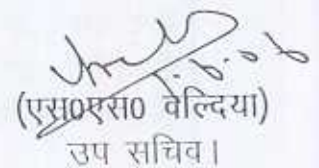 (एस0एस0 वेल्दिया)
उप सचिव।